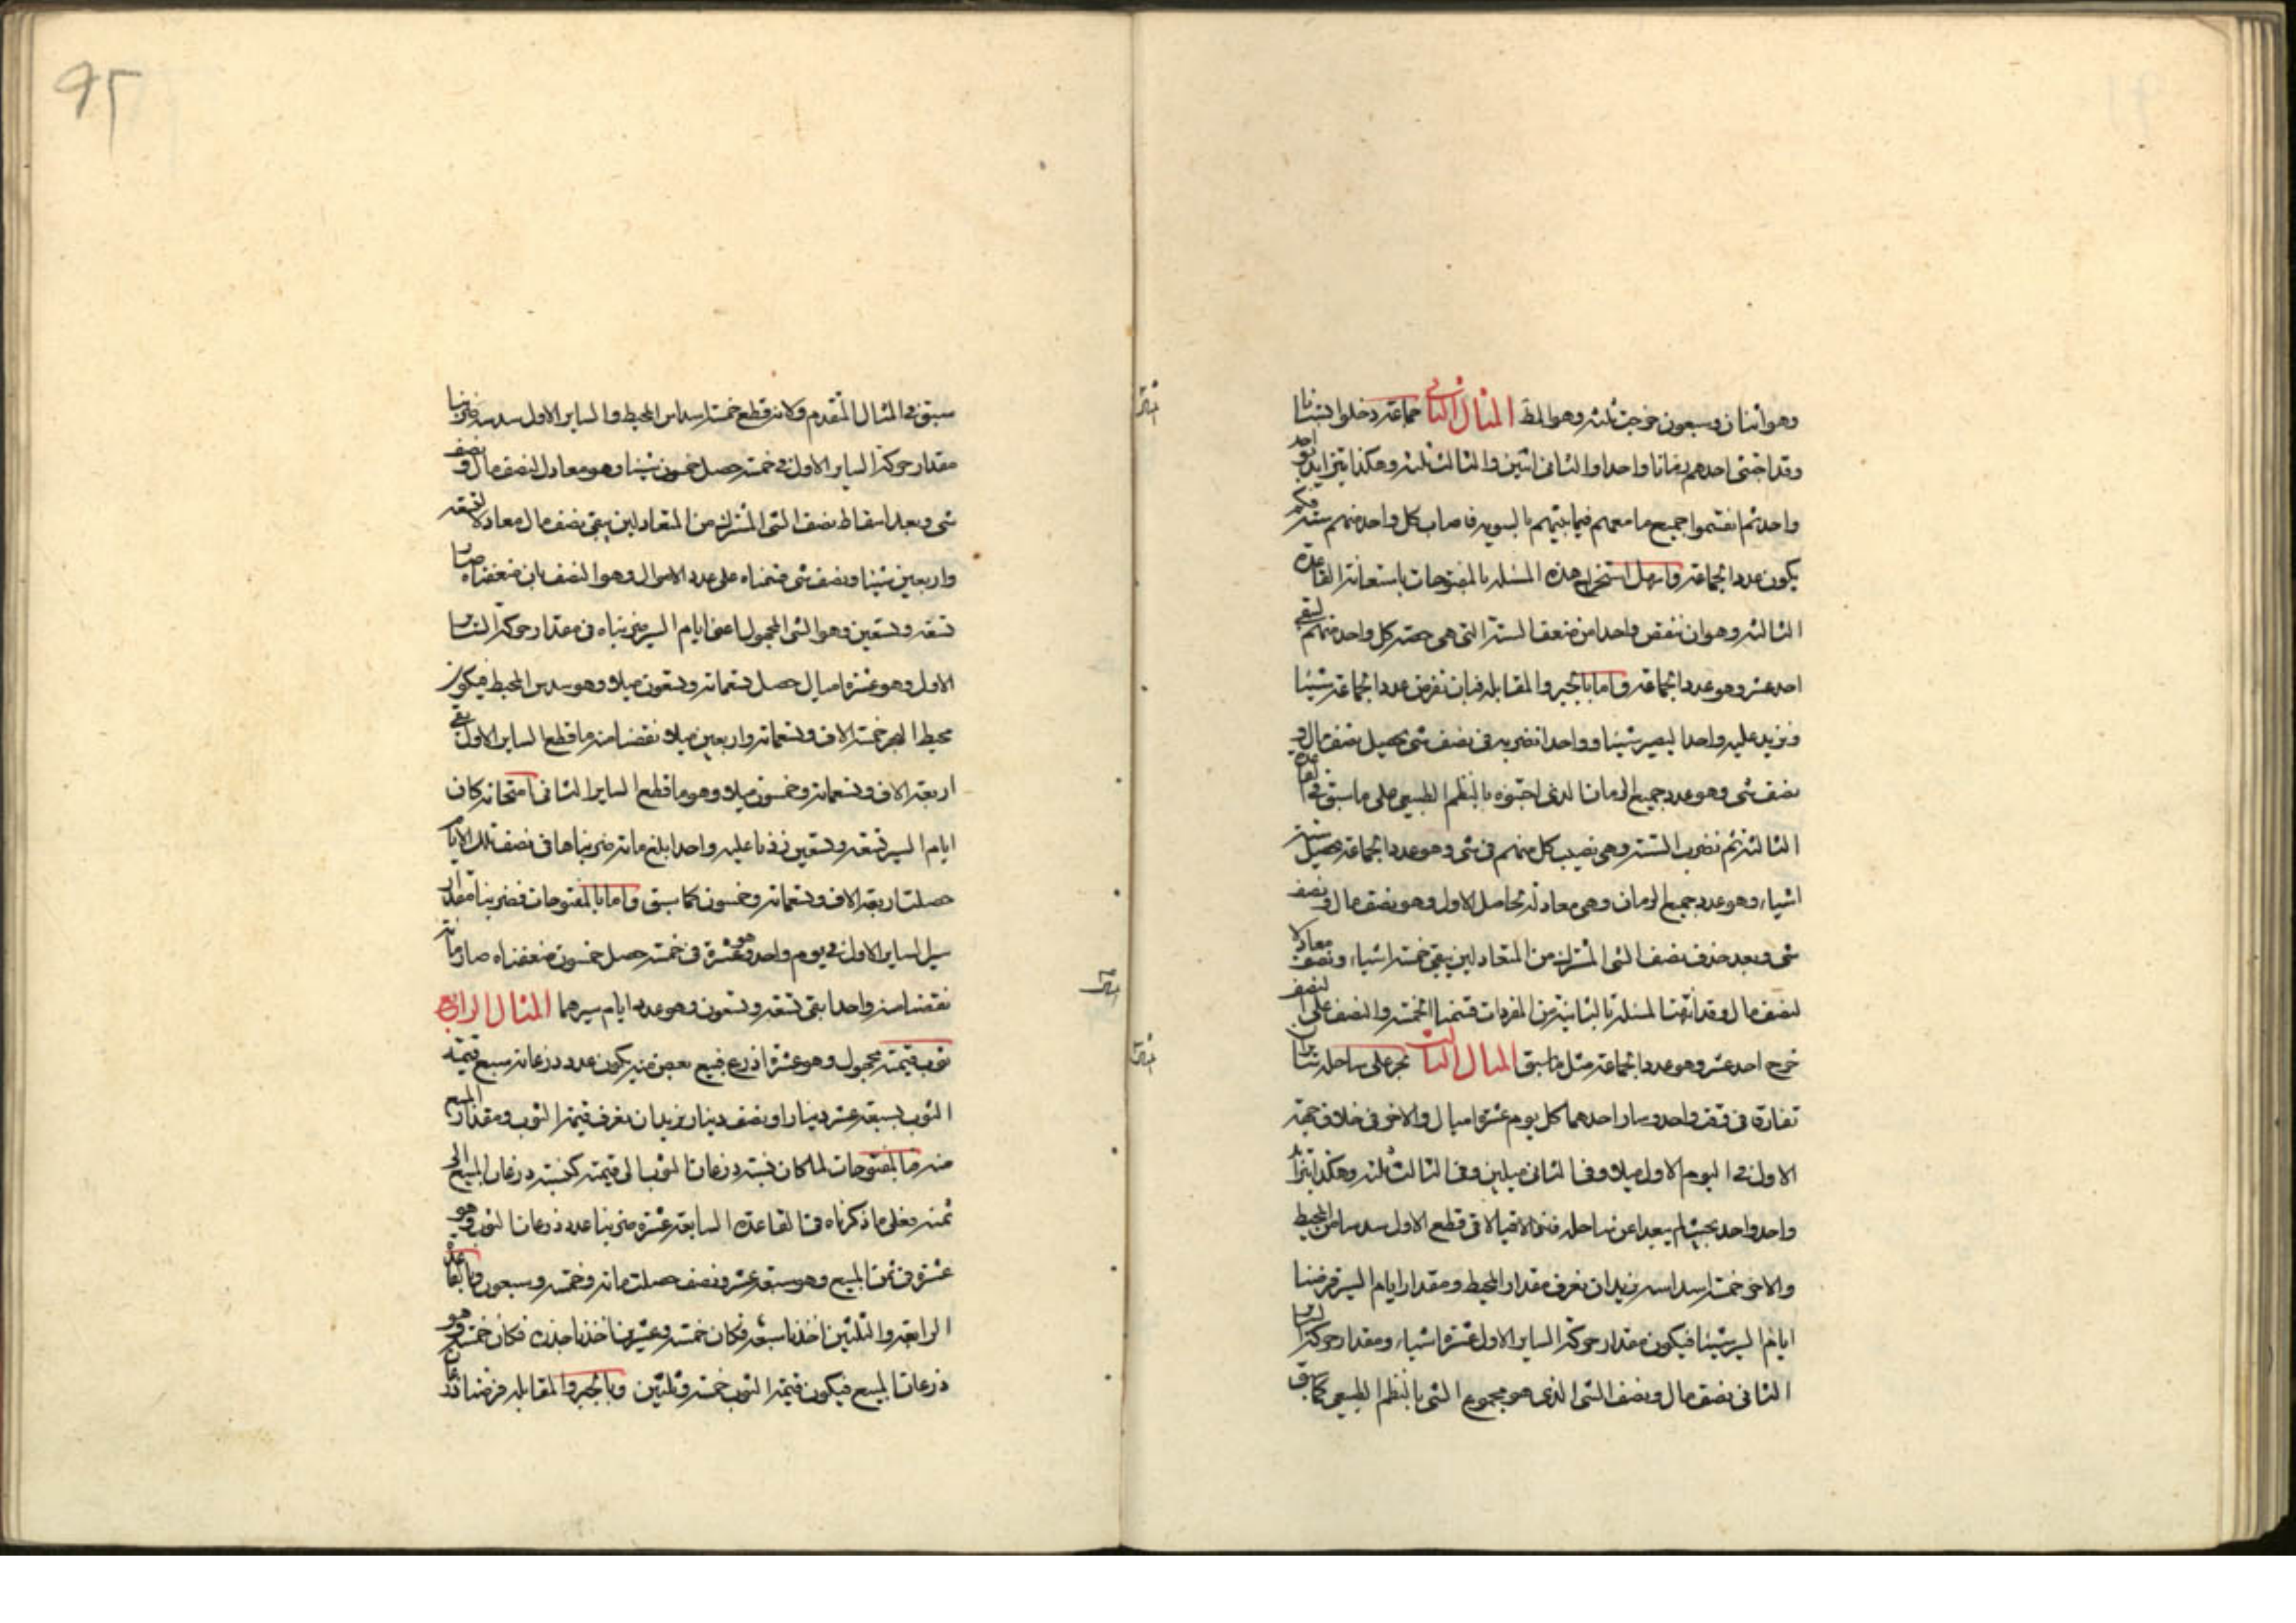 وهو اثنان وسبعون خرجت ثلثه وهو المط المثال الثاني جماعة دخلوا بستانا
وقد اجتنى احدهم رمانا واحدا والثاني اثنين والثالث ثلثه وهكذا بتزايد واحد
واحد ثم اقتسموا جميع ما معهم فيما بينهم بالسويه فاصاب كل واحد منهم سته فكم
يكون عدد الجماعة واسهل استخراج هذه المسئله بالمفتوحات باستعانة القاعدة
الثالثه وهو ان ننقص واحدا من ضعف الستة التي هي حصة كل واحد منهم ليبقى
احد عشر وهو عدد الجماعة واما بالجبر والمقابله فبان نفرض عدد الجماعة شيئا
ونزيد عليه واحدا ليصير شيئا وواحدا نضربه في نصف شي يحصل نصف مال و
نصف شي وهو عدد جميع الرمان الذي اجتنوه بالنظم الطبيعي على ما سبق في القاعدة
الثالثة ثم نضرب الستة وهي نصيب كل منهم في شي وهو عدد الجماعة يحصل ستة
اشياء وهو عدد جميع الرمان وهي معادلة لحاصل الاول وهو نصف مال ونصف
شي وبعد حذف نصف الشي المشترك من المتعادلين يبقى خمسة اشياء ونصف معادلا
لنصف مال وقد انتهت المسئلة بالثانية من المفردات قسمنا الخمسة والنصف على النصف
خرج احد عشر وهو عدد الجماعة مثل ما سبق المثال الثالث بحر على ساحله
في وقت واحد وسار احدهما كل يوم عشرة اميال والاخر في خلاف جهة
الاول في اليوم الاول ميلا وفي الثاني ميلين وفي الثالث ثلثه وهكذا بتزايد
واحد واحد بعيدا عن ساحله قطع الاول سدسا من المحيط
والاخر خمسة اسداسه نريد ان نعرف مقدار المحيط ومقدار ايام السير فرضنا
ايام السير شيئا فيكون مقدار حركة الساير الاول عشرة اشياء ومقدار حركة الساير
الثاني نصف مال ونصف الشي الذي هو مجموع الشي بالنظم الطبيعي كما سبق
95
سبق في المثال المتقدم وكانه قطع خمسة اسداس المحيط والساير الاول سدسه ضربنا
مقدار حركة الساير الاول في خمسة حصل خمسون شيئا وهو معادل لنصف مال ونصف
شي وبعد اسقاط نصف الشي المشترك من المتعادلين يبقى نصف مال معادلا لتسعة
واربعين شيئا ونصف شي قسمناه على عدد الاموال وهو النصف بان ضعفناه صار
تسعة وتسعين وهو الشي المجهول اعني ايام السير ضربناه في مقدار حركة الساير
الاول وهو عشرة اميال حصل تسعمائة وتسعون ميلا وهو سدس المحيط فيكون
محيط البحر خمسة الاف وتسعمائة واربعين ميلا نقصنا منه ما قطع الساير الاول بقي
اربعة الاف وتسعمائة وخمسون ميلا وهو ما قطع الساير الثاني امتحانه كان
ايام السير تسعة وتسعين زدنا عليه واحدا بلغ مائة ضربناها في نصف تلك الايام
حصلت اربعة الاف وتسعمائة وخمسون كما سبق واما بالمفتوحات فضربنا مقدار
سير الساير الاول في يوم واحد وهو عشرة في خمسة حصل خمسون ضعفناه صار مائة
نقصنا منه واحدا بقي تسعة وتسعون وهو عدد ايام سيرهما المثال الرابع
ثوب قيمته مجهول وهو عشرة اذرع فبيع بعض منه يكون عدد ذرعانه سبع قيمة
الثوب بسبعة عشر دينارا ونصف دينار نريد ان نعرف قيمة الثوب ومقدار المبيع
منه فبالمفتوحات لما كان نسبة ذرعان الثوب الى قيمته كنسبة ذرعان المبيع الى
ثمنه فعلى ما ذكرناه في القاعدة السابعة عشرة ضربنا عدد ذرعان الثوب وهو
عشرة في ثمن المبيع وهو سبعة عشر ونصف حصلت مائة وخمسة وسبعون وبالقاعدة
الرابعة والثلثين اخذنا سبعه فكان خمسة وعشرين اخذنا جذره فكان خمسة وهو
ذرعان المبيع فيكون قيمة الثوب خمسة وثلثين وبالجبر والمقابله فرضنا ذرعان